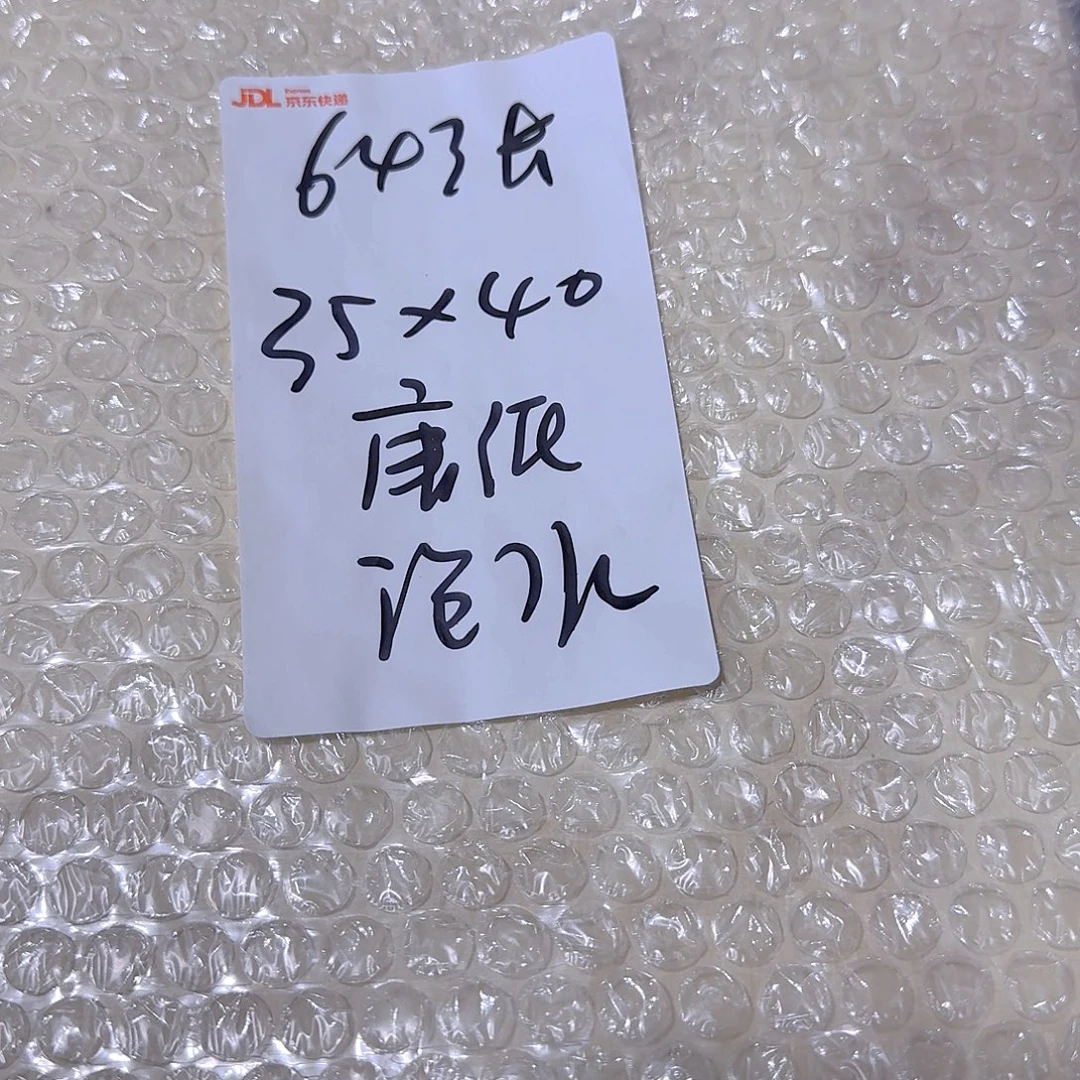 JDL Express 京东快递
643长
35×40
唐纸
泡水